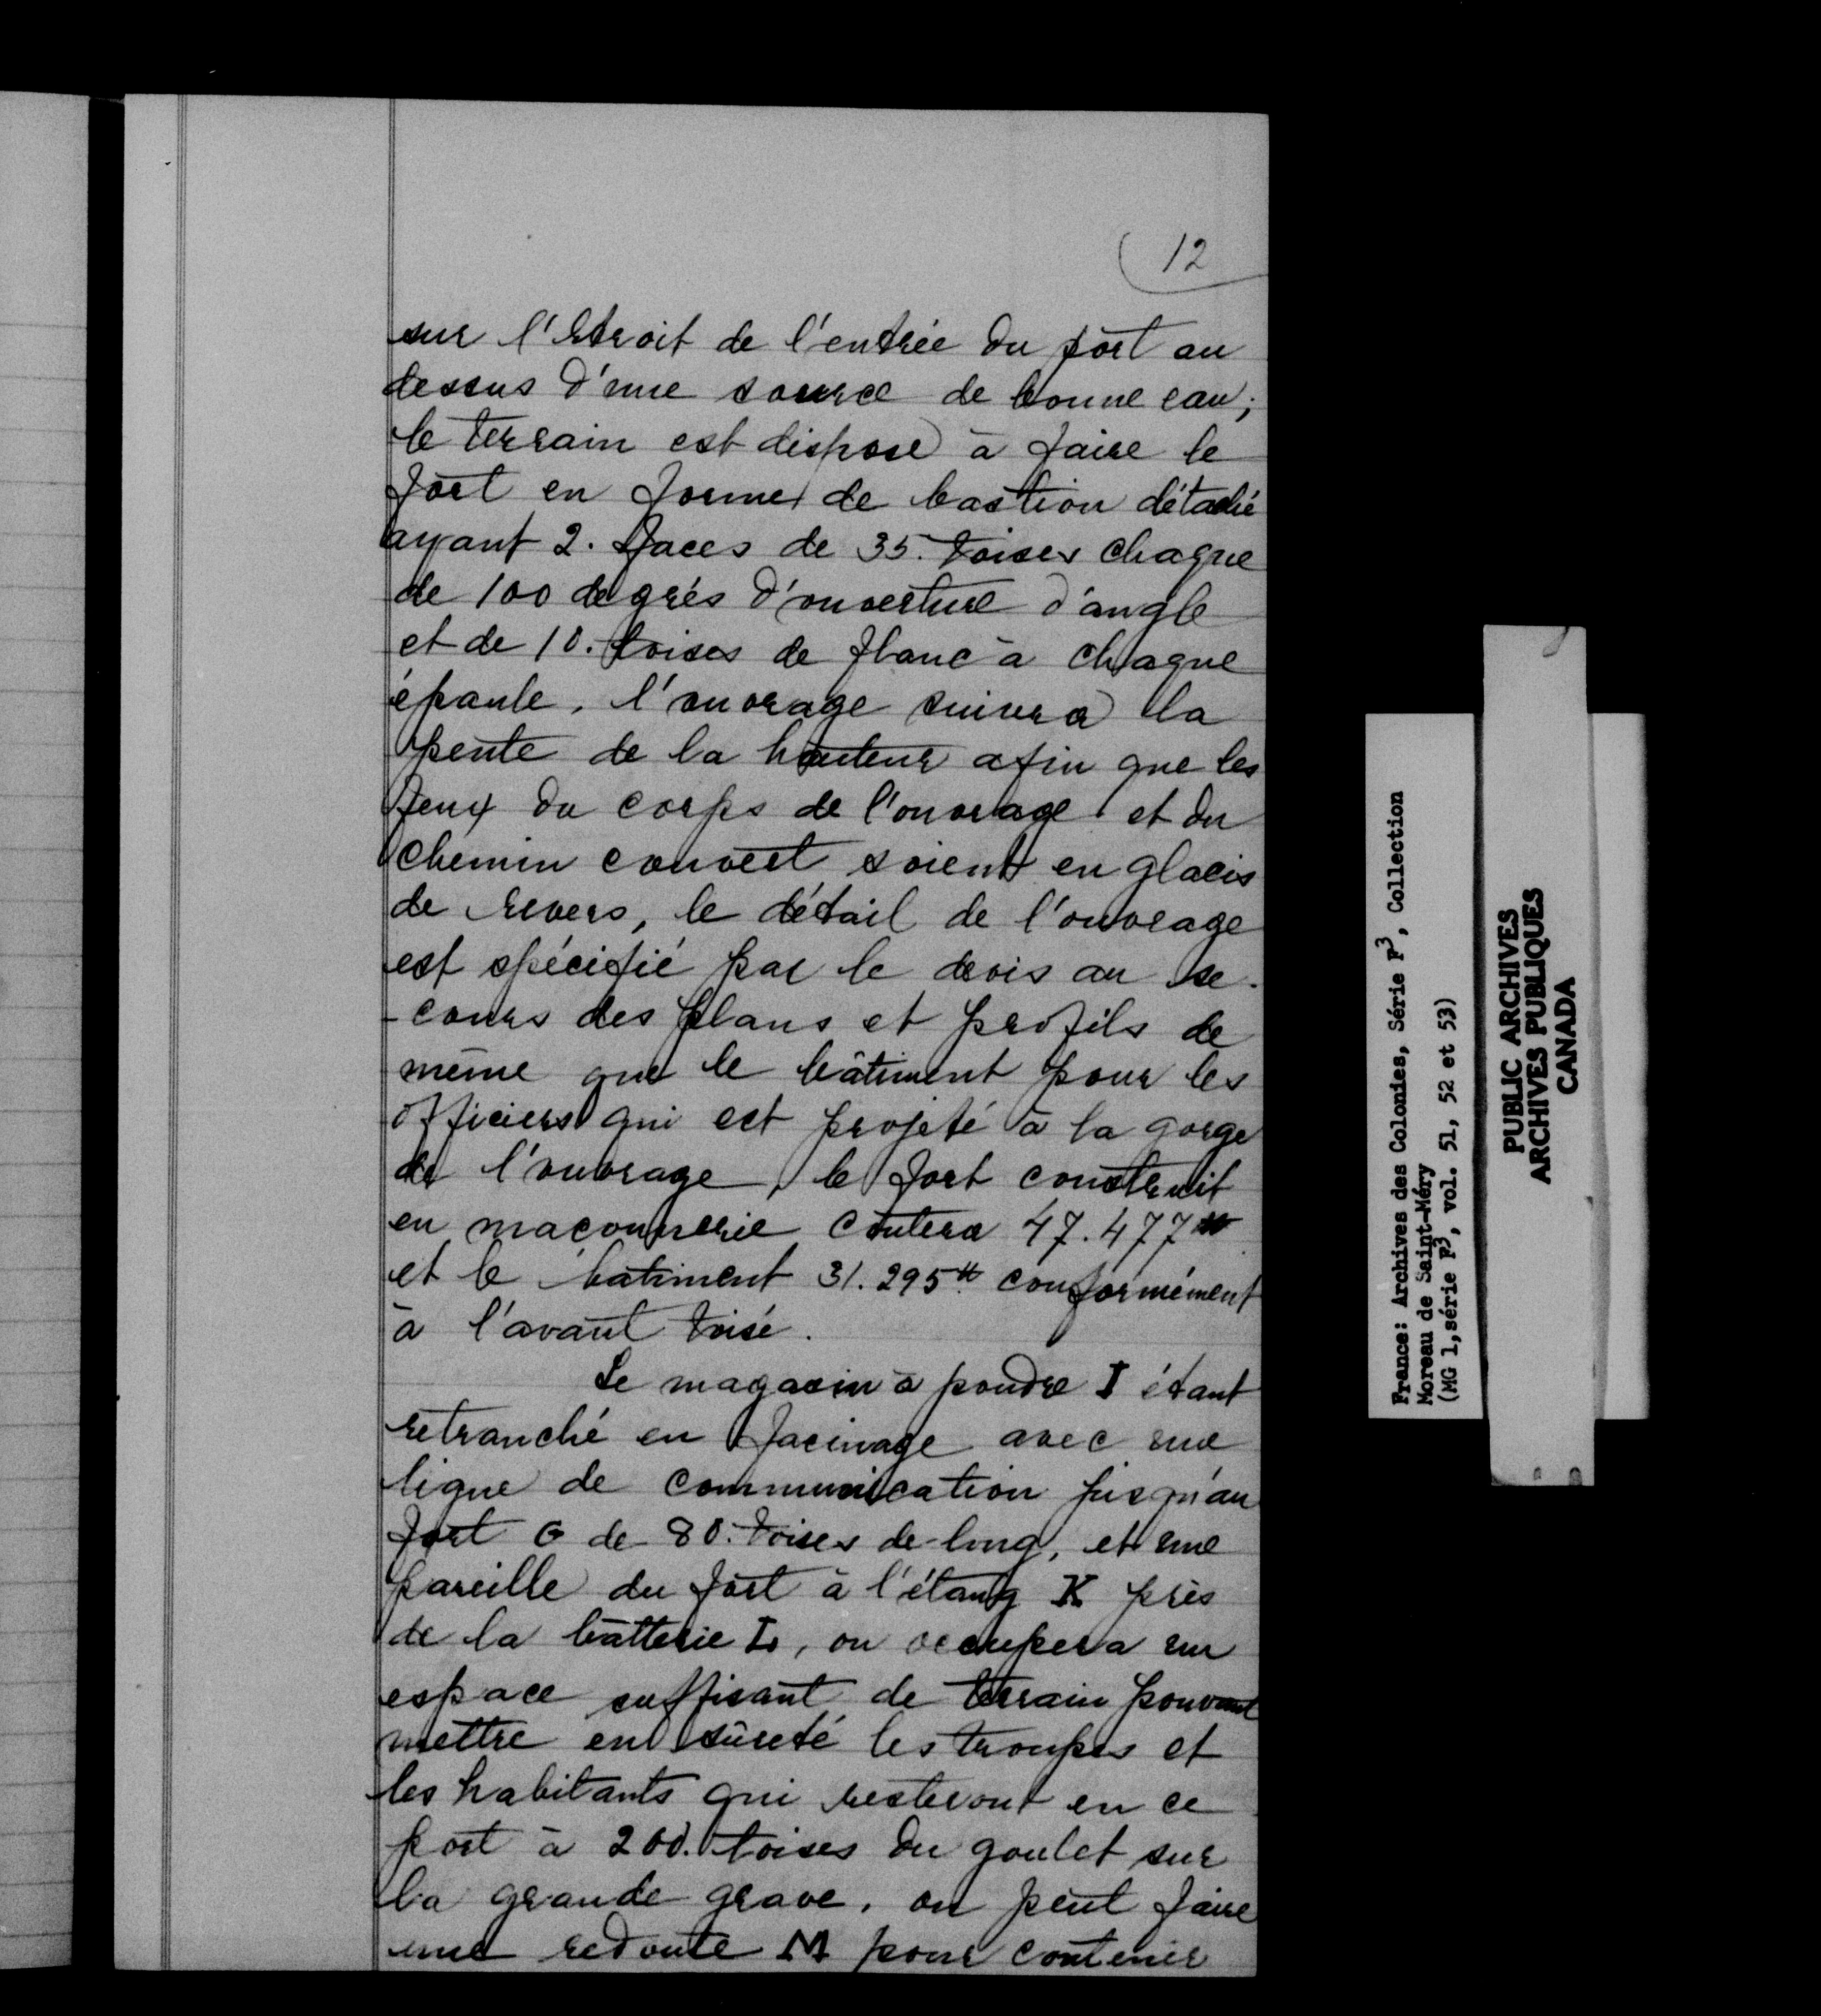 12
sur l'étroit de l'entrée du port au
dessus d'une source de bonne eau;
le terrain est disposé à faire le
fort en forme de bastion détaché
ayant 2. faces de 35. toises chaque
de 100 degrés d'ouverture d'angle
et de 10. toises de flanc à chaque
épaule, l'ouvrage suivra la
pente de la hauteur afin que les
feux du corps de l'ouvrage et du
chemin couvert soient en glacis
de revers, le détail de l'ouvrage
est spécifié par le devis au se-
-cours des plans et profils de
même que le bâtiment pour les
officiers qui est projeté à la gorge
de l'ouvrage, le fort construit
en maconnerie coutera 47.477 ₶
et le batiment 31.295 ₶ conformément
à l'avant toisé.
Le magasin à poudre I étant
retranché en facinage avec une
ligne de communication jusqu'au
fort G de 80. toises de long, et une
pareille du fort à l'étang K près
de la batterie L, on occupera un
espace suffisant de terrain pouvant
mettre en sûreté les troupes et
les habitants qui resteront en ce
port à 200. toises du goulet sur
la grande grave, on peut faire
une redoute M pour contenir
France: Archives des Colonies, Série F³, Collection
Moreau de Saint-Méry
(MG 1,série F³, vol. 51, 52 et 53)
PUBLIC ARCHIVES
ARCHIVES PUBLIQUES
CANADA